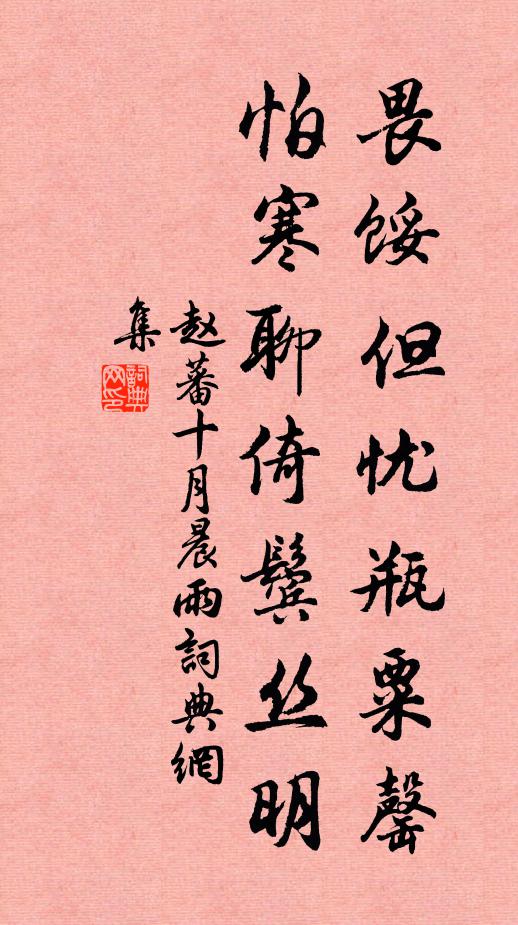 畏馁但忧瓶粟罄
怕寒聊倚鬓丝明
赵蕃十月晨雨詞典網
集
詞典网印